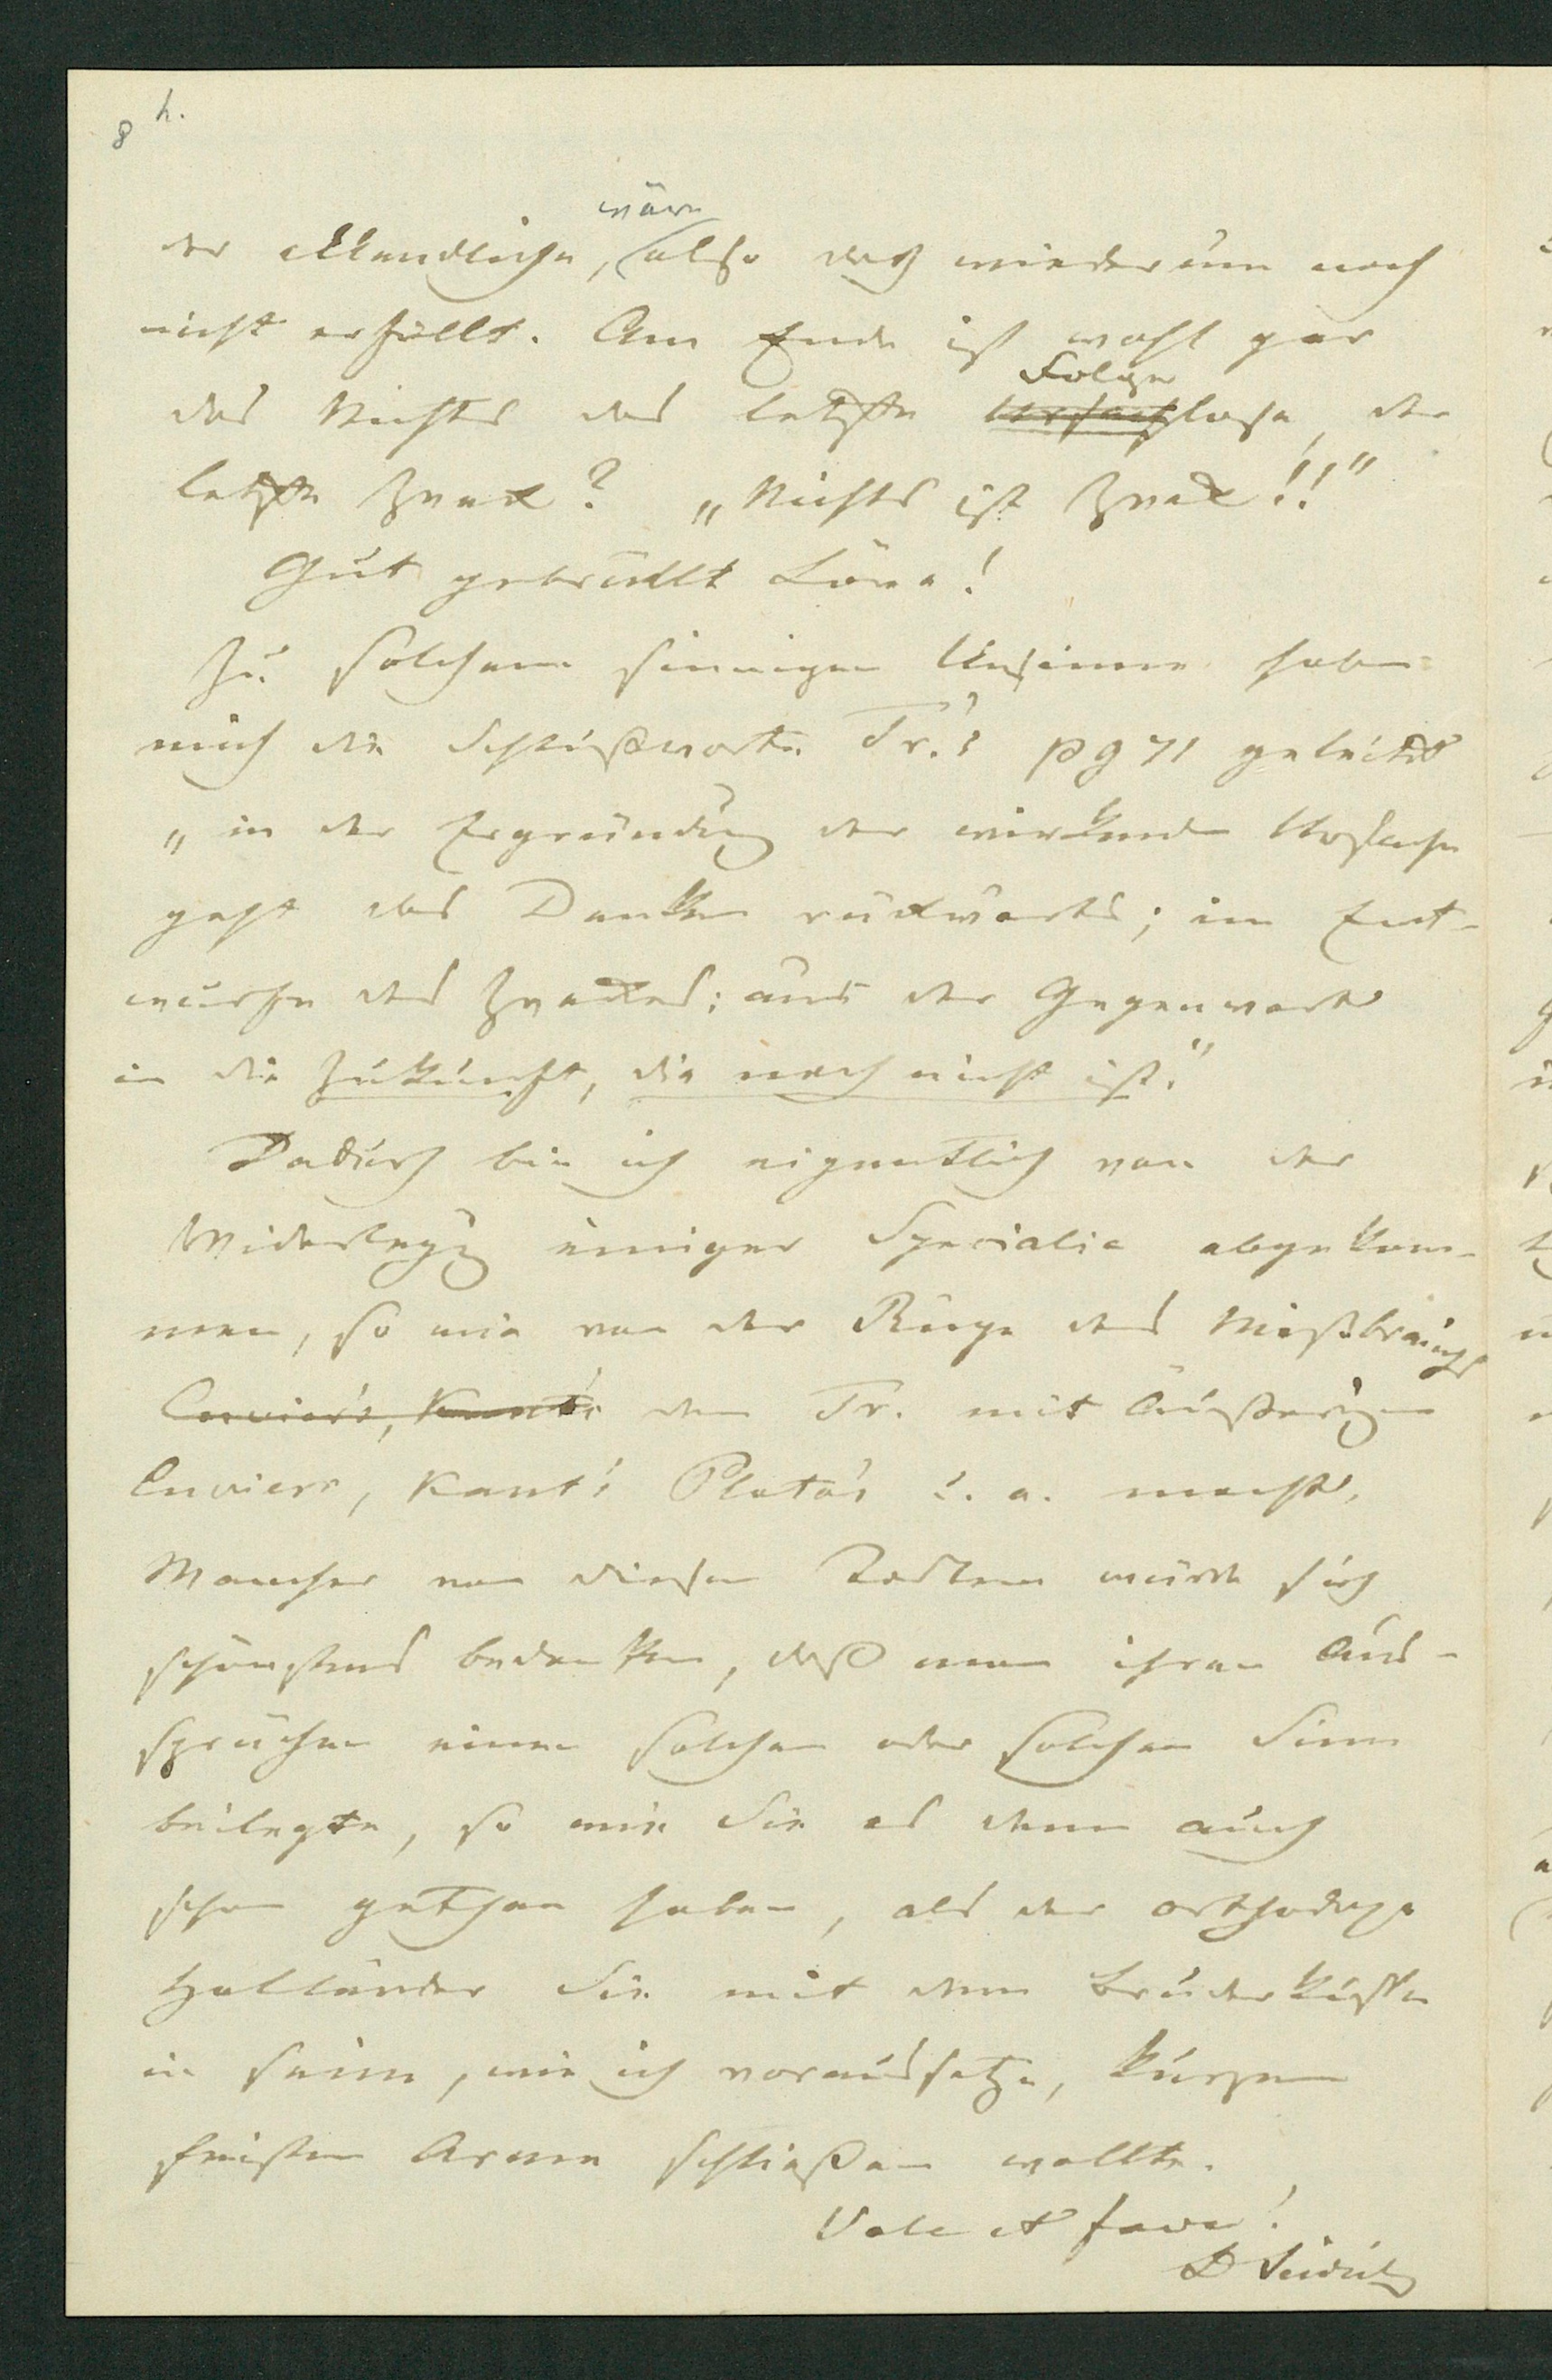 8 h.
wäre
der allendliche, also daß wiederum noch
nicht erfüllt. Am Ende ist wohl gar
Folge
das Nichts das letzte Ursachlose, der
letzte Zweck? „Nichts ist Zweck!!"
Gut gebrüllt Löwe!
Zu solchem sinnigen Unsinne haben
mich die Schlußworte Tr.'s pg 71 geleitet
„in der Ergründung der wirkenden Ursache
geht das Denken rückwärts; im Ent-
wurfe des Zweckes: aus der Gegenwart
in die Zukunft, die noch nicht ist."
Dadurch bin ich eigentlich von der
Widerlegung einiger Specialia abgekom-
men, so wie von der Rüge des Mißbrauchs
Cuvier's, Kant's den Tr. mit Äußerungen
Cuviers, Kant's Plato's u. a. macht.
Mancher von diesen Todten würde sich
schönstens bedanken, daß man ihren Aus-
sprüchen einen solchen oder solchen Sinn
beilegte, so wie Sie es denn auch
schon gethan haben, als der orthodoxe
Holländer Sie mit dem Bruderkusse
in seine, wie ich voraussetze, kurzen
feisten Arme schließen wollte.
Vale et fave!
D